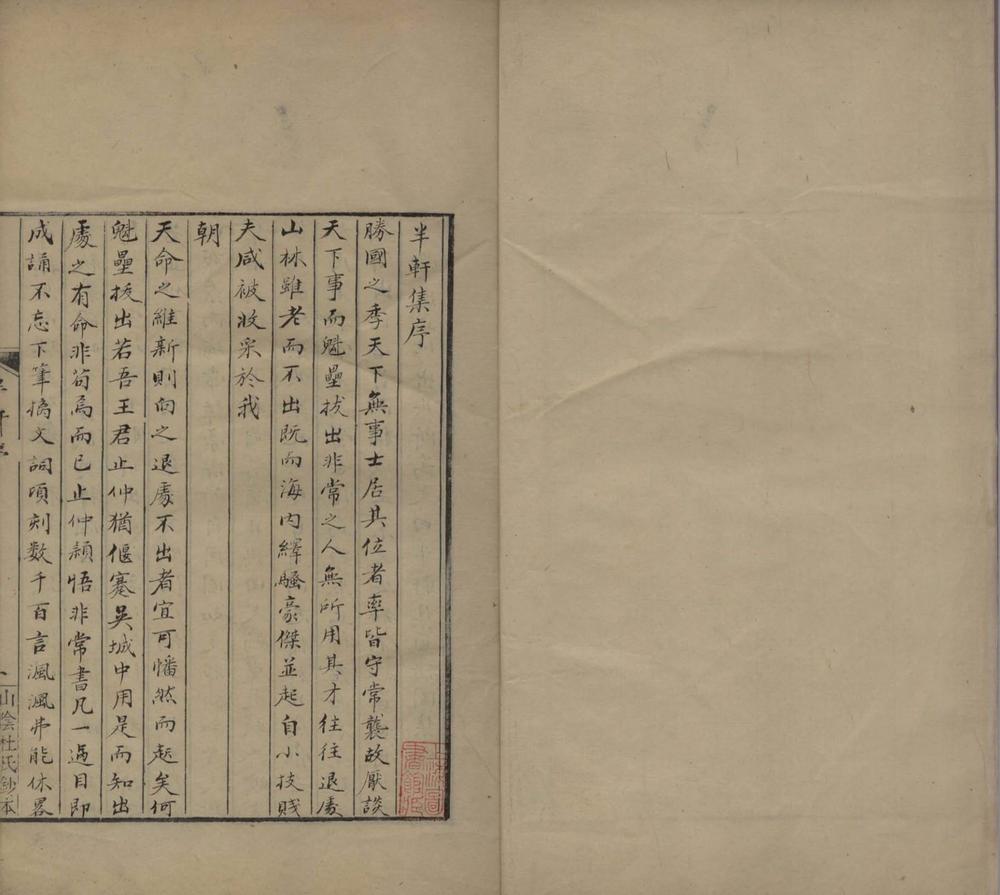 半軒集序
勝國之季天下無事士居其位者率皆守常襲故厭談
天下事而魁壘拔出非常之人無所用其才往往退處
山林雖老而不出既而海内繹騷豪傑並起自小技賤
夫咸被收采於我
朝
天命之維新則向之退處不出者宜可幡然而起矣何
魁壘拔出若吾王君止仲猶偃蹇吳城中用是而知出
處之有命非苟焉而已止仲頴悟非常書凡一過目即
成誦不忘下筆摛文詞頃刻數千百言渢渢弗能休畧
山陰杜氏鈔本